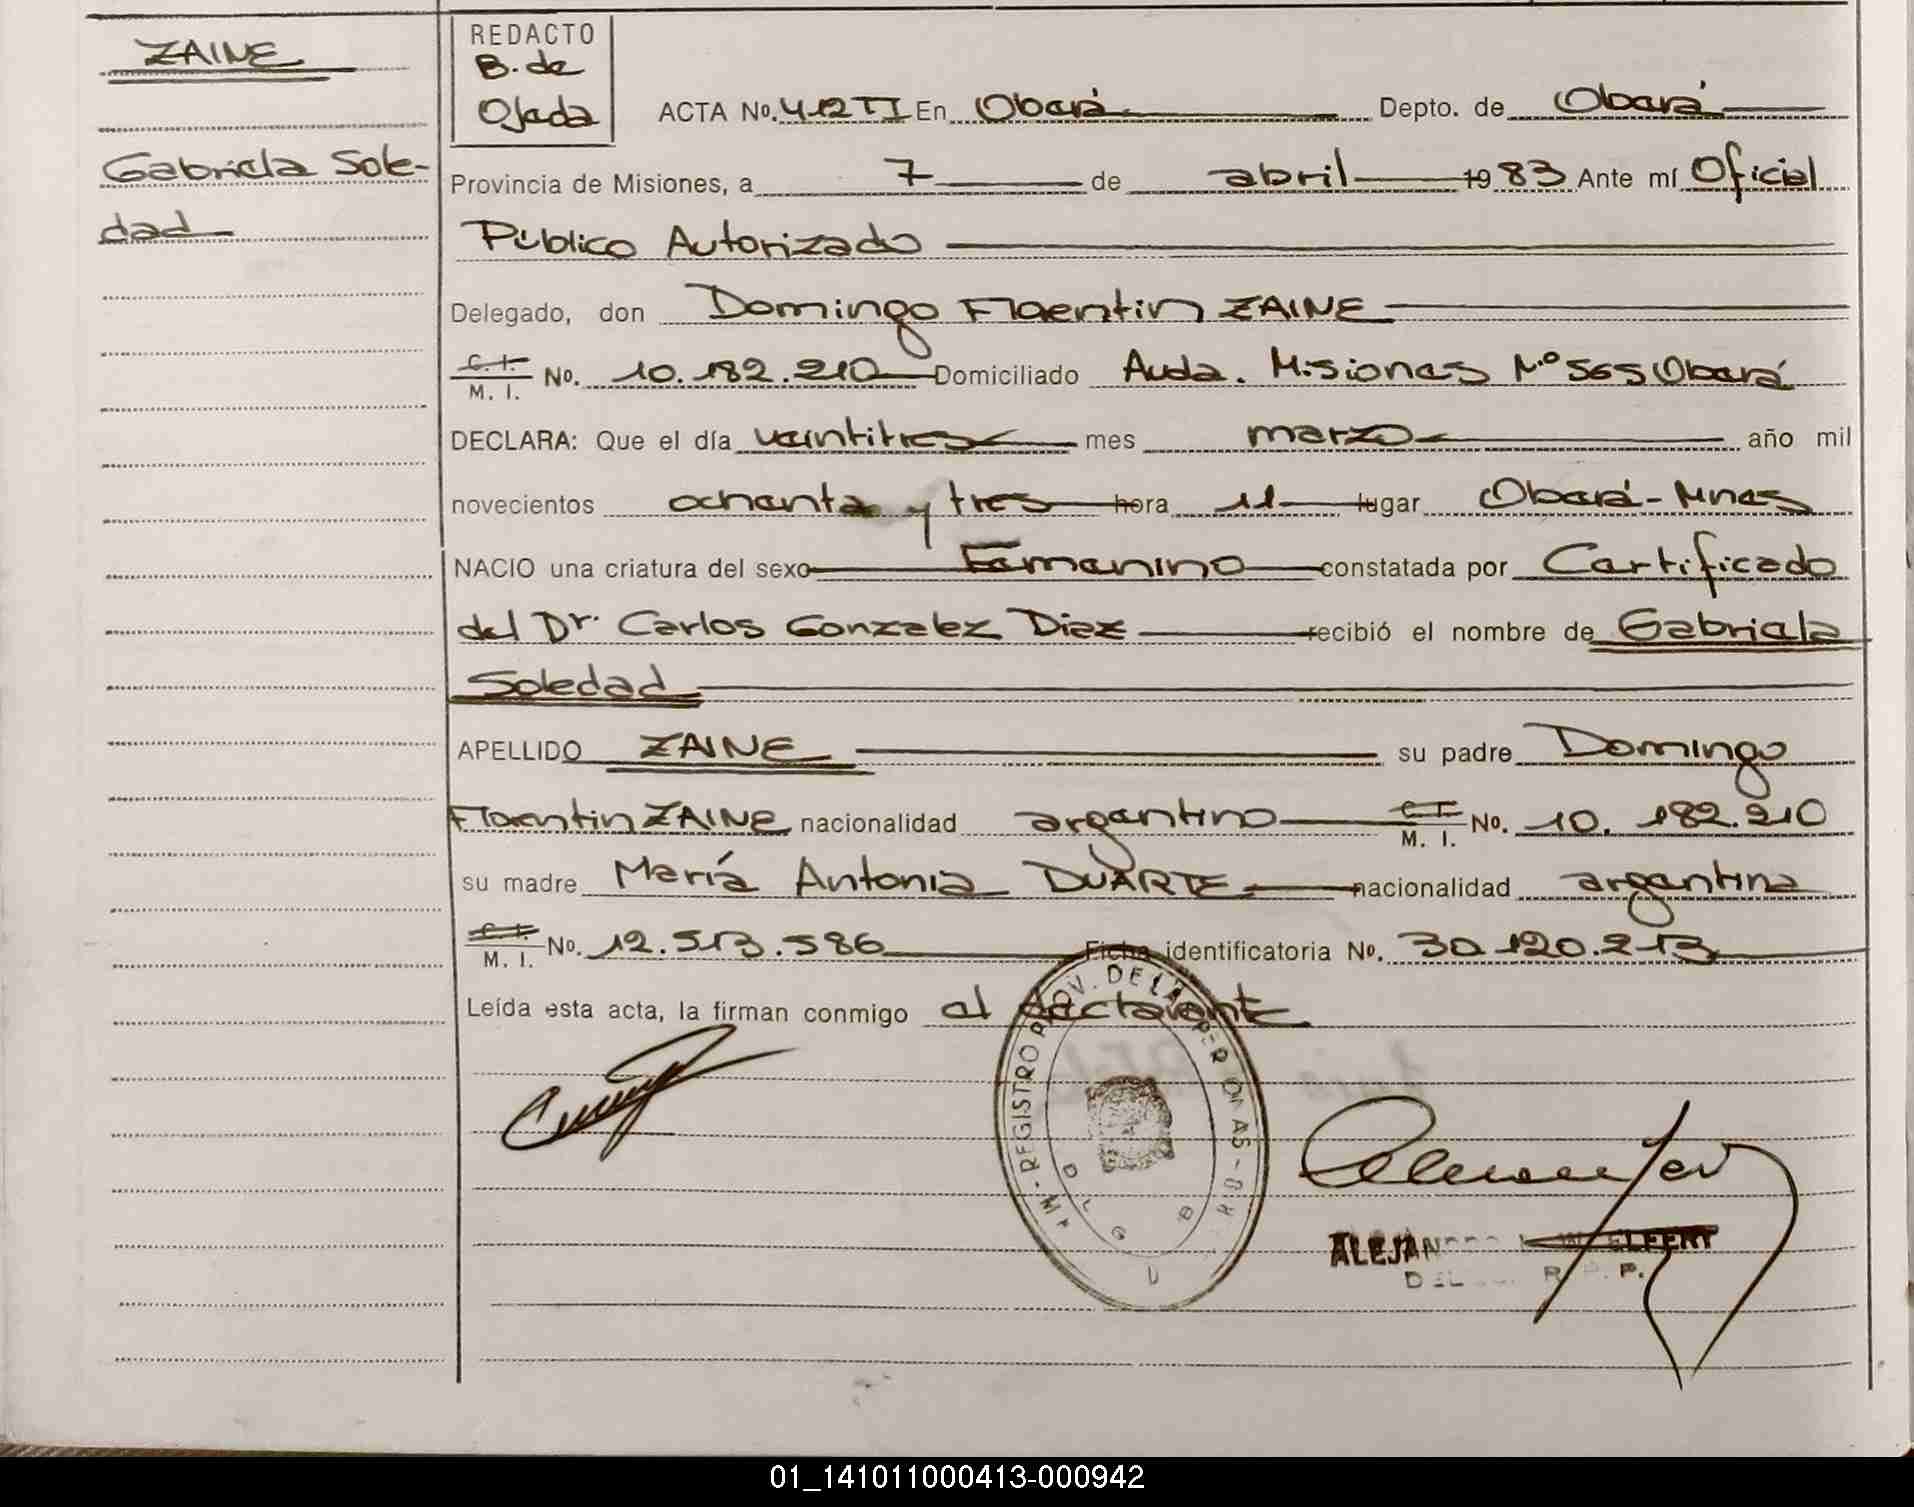 ZAINE
Gabriela Sole-
dad
REDACTO
B. de
Ojeda
ACTA No. 412 TI En Oberá Depto. de Oberá
Provincia de Misiones, a 7 de abril 1983 Ante mí Oficial
Público Autorizado
Delegado, don Domingo Florentin ZAINE
C. I.
M. I. No. 10.182.210 Domiciliado Avda. Misiones N.º 565 Oberá
DECLARA: Que el día veintitres mes marzo año mil
novecientos ochenta y tres hora 11 lugar Oberá-Mnes
NACIO una criatura del sexo Femenino constatada por Certificado
del Dr. Carlos Gonzalez Diaz recibió el nombre de Gabriela
Soledad
APELLIDO ZAINE su padre Domingo
Florentin ZAINE nacionalidad argentino C. I. M. I. No. 10.182.210
su madre María Antonia DUARTE nacionalidad argentina
C. I. M. I. No. 12.513.586 Ficha identificatoria No. 30.120.213
Leída esta acta, la firman conmigo el declarante
REGISTRO PROV. DE LAS PERSONAS
ALEJAN
R. P. P.
01_141011000413-000942